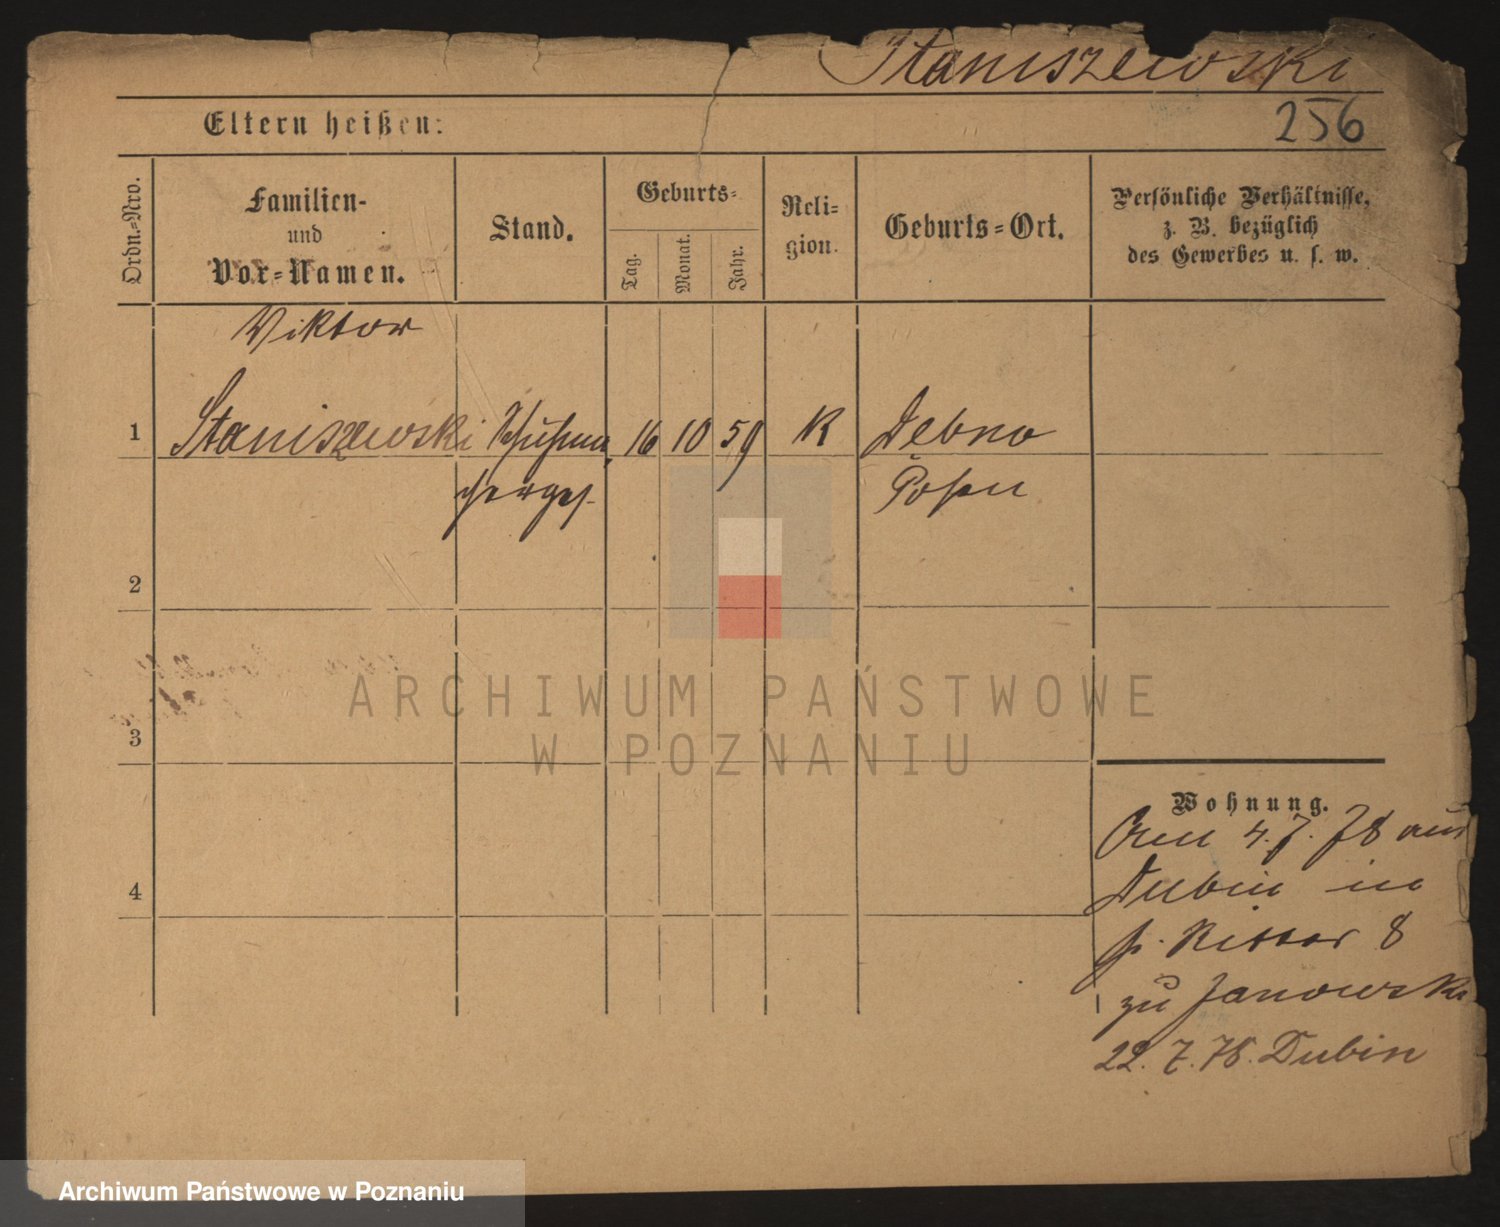 Staniszewski
256
Eltern heißen:
Ordn.-Nro.
Familien-
und
Vor-Namen.
Stand.
Geburts-
Tag.
Monat.
Jahr.
Reli-
gion.
Geburts-Ort.
Persönliche Verhältnisse,
z. B. bezüglich
des Gewerbes u. s. w.
Viktor
1 Staniszewski Schuhma 16 10 59 K Dębno
cherges. Posen
2
3
4
Wohnung.
4. 7. 78 aus
Dubin in
Ritter 8
zu Janowski
22. 7. 78. Dubin
ARCHIWUM PAŃSTWOWE
W POZNANIU
Archiwum Państwowe w Poznaniu